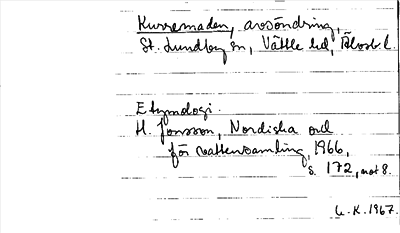 Kurremaden, avsöndring,
St. Lundby sn, Vättle hd, Älvsb. l.
Etymologi.
H. Jonsson, Nordiska ord
för vattensamling, 1966,
s. 172, not 8.
K. 1967.